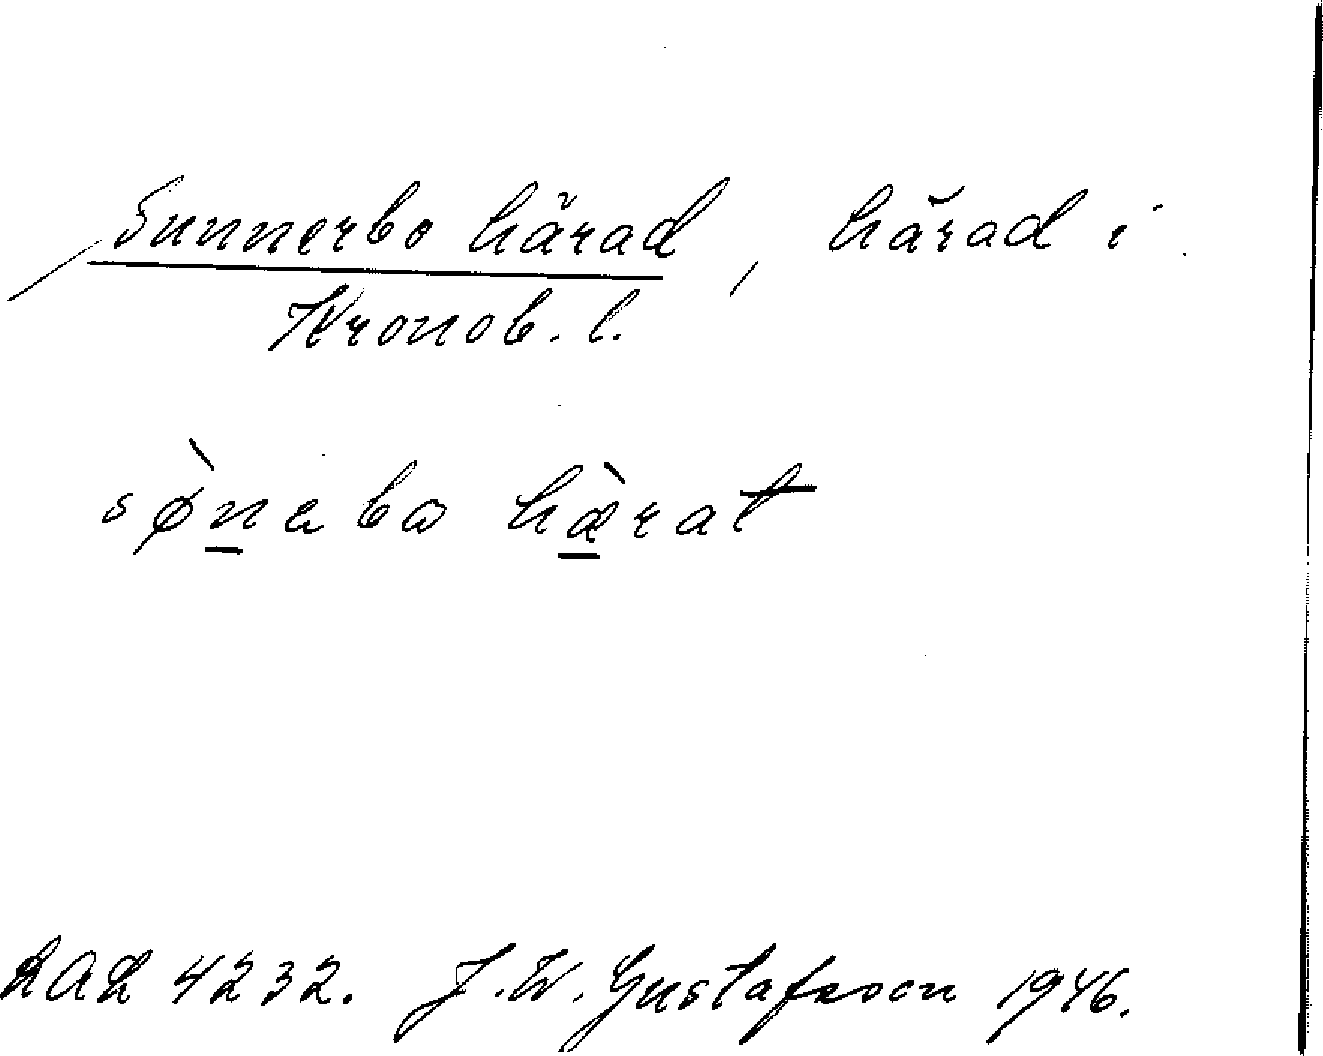 Sunnerbo härad, härad i
Kronob. l.
sø̀nabω hæ̀rat
LAL 4232. J. W. Gustafsson 1946.